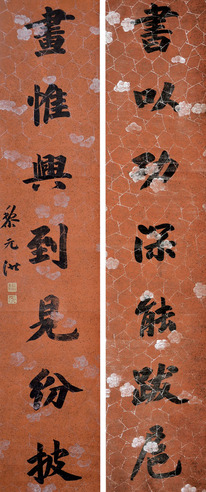 書以功深能跋扈
畫惟興到見紛披
黎元洪